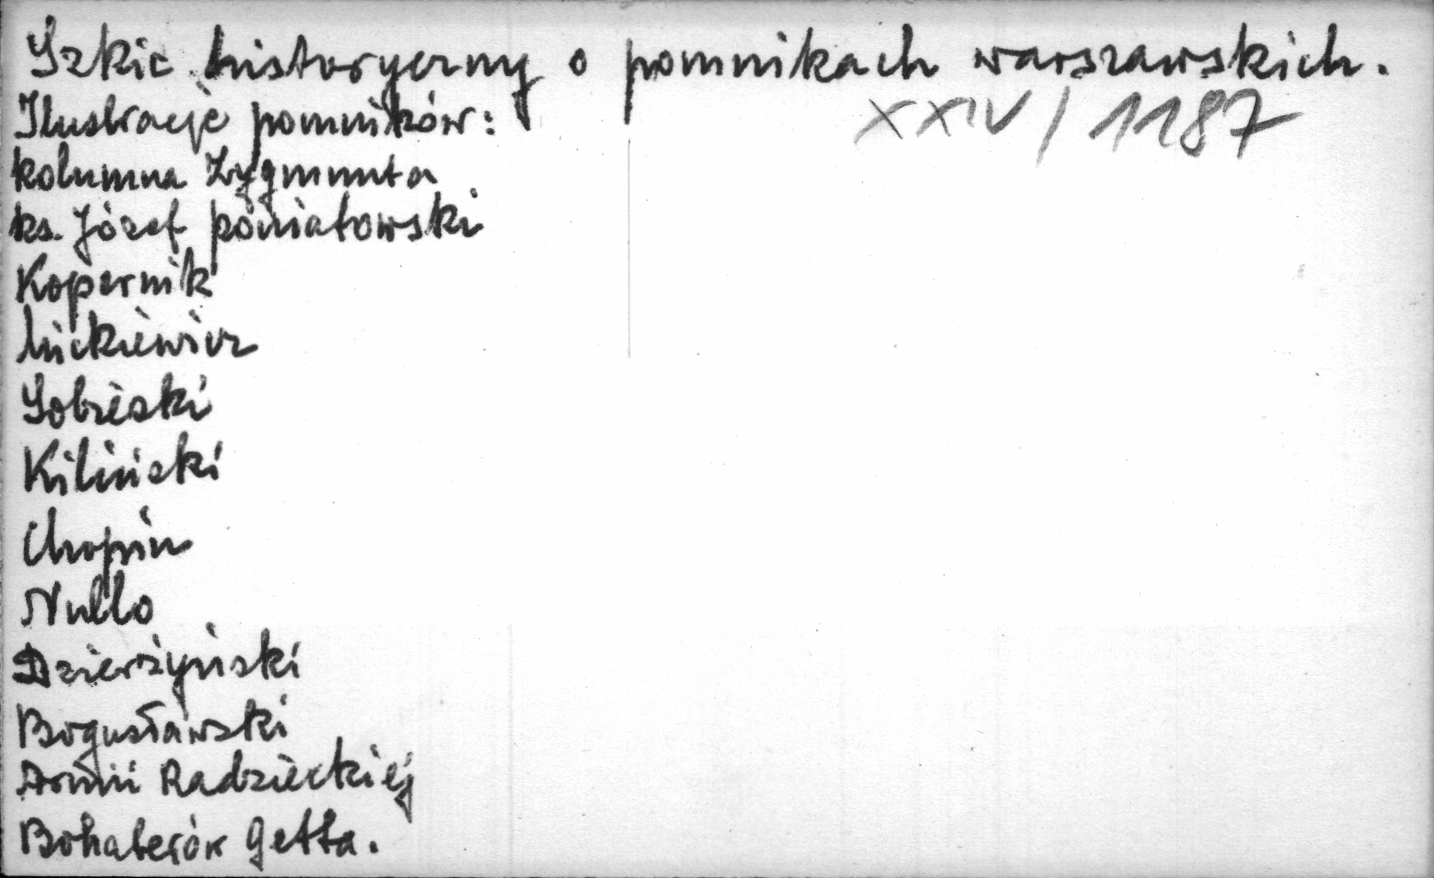 Szkic historyczny o pomnikach warszawskich.
Ilustracje pomników:
XXIV/1187
kolumna Zygmunta
ks. Józef Poniatowski
Kopernik
Mickiewicz
Sobieski
Kiliński
Chopin
Nullo
Dzierżyński
Bogusławski
Armii Radzieckiej
Bohaterów Getta.